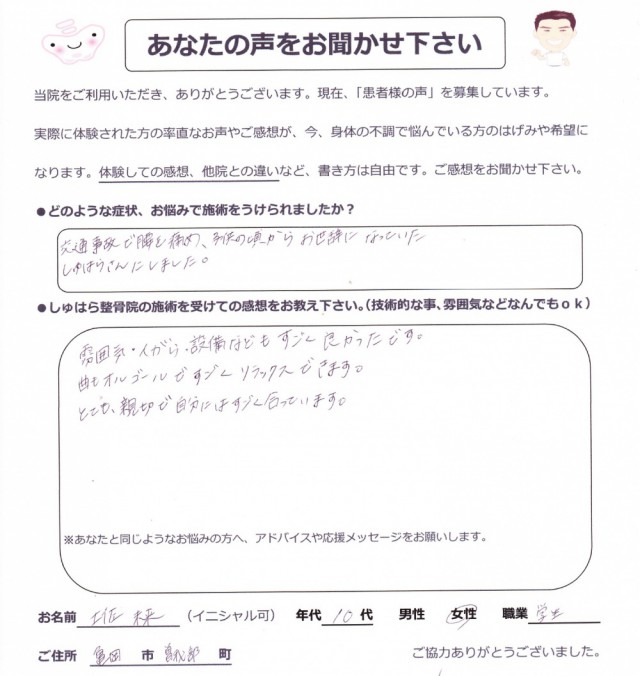 あなたの声をお聞かせ下さい
当院をご利用いただき、ありがとうございます。現在、「患者様の声」を募集しています。
実際に体験された方の率直なお声やご感想が、今、身体の不調で悩んでいる方のはげみや希望に
なります。体験しての感想、他院との違いなど、書き方は自由です。ご感想をお聞かせ下さい。
●どのような症状、お悩みで施術をうけられましたか？
交通事故で膝を痛め、子供の頃からお世辞になっていた
しゅはらさんにしました。
●しゅはら整骨院の施術を受けての感想をお教え下さい。（技術的な事、雰囲気などなんでもｏｋ）
雰囲気・人がら・設備などもすごく良かったです。
曲もオルゴールですごくリラックスできます。
とても、親切で自分にはすごく合っています。
※あなたと同じようなお悩みの方へ、アドバイスや応援メッセージをお願いします。
お名前 未来 （イニシャル可） 年代 10 代 男性 女性 職業 学生
ご住所 亀岡 市 町 ご協力ありがとうございました。